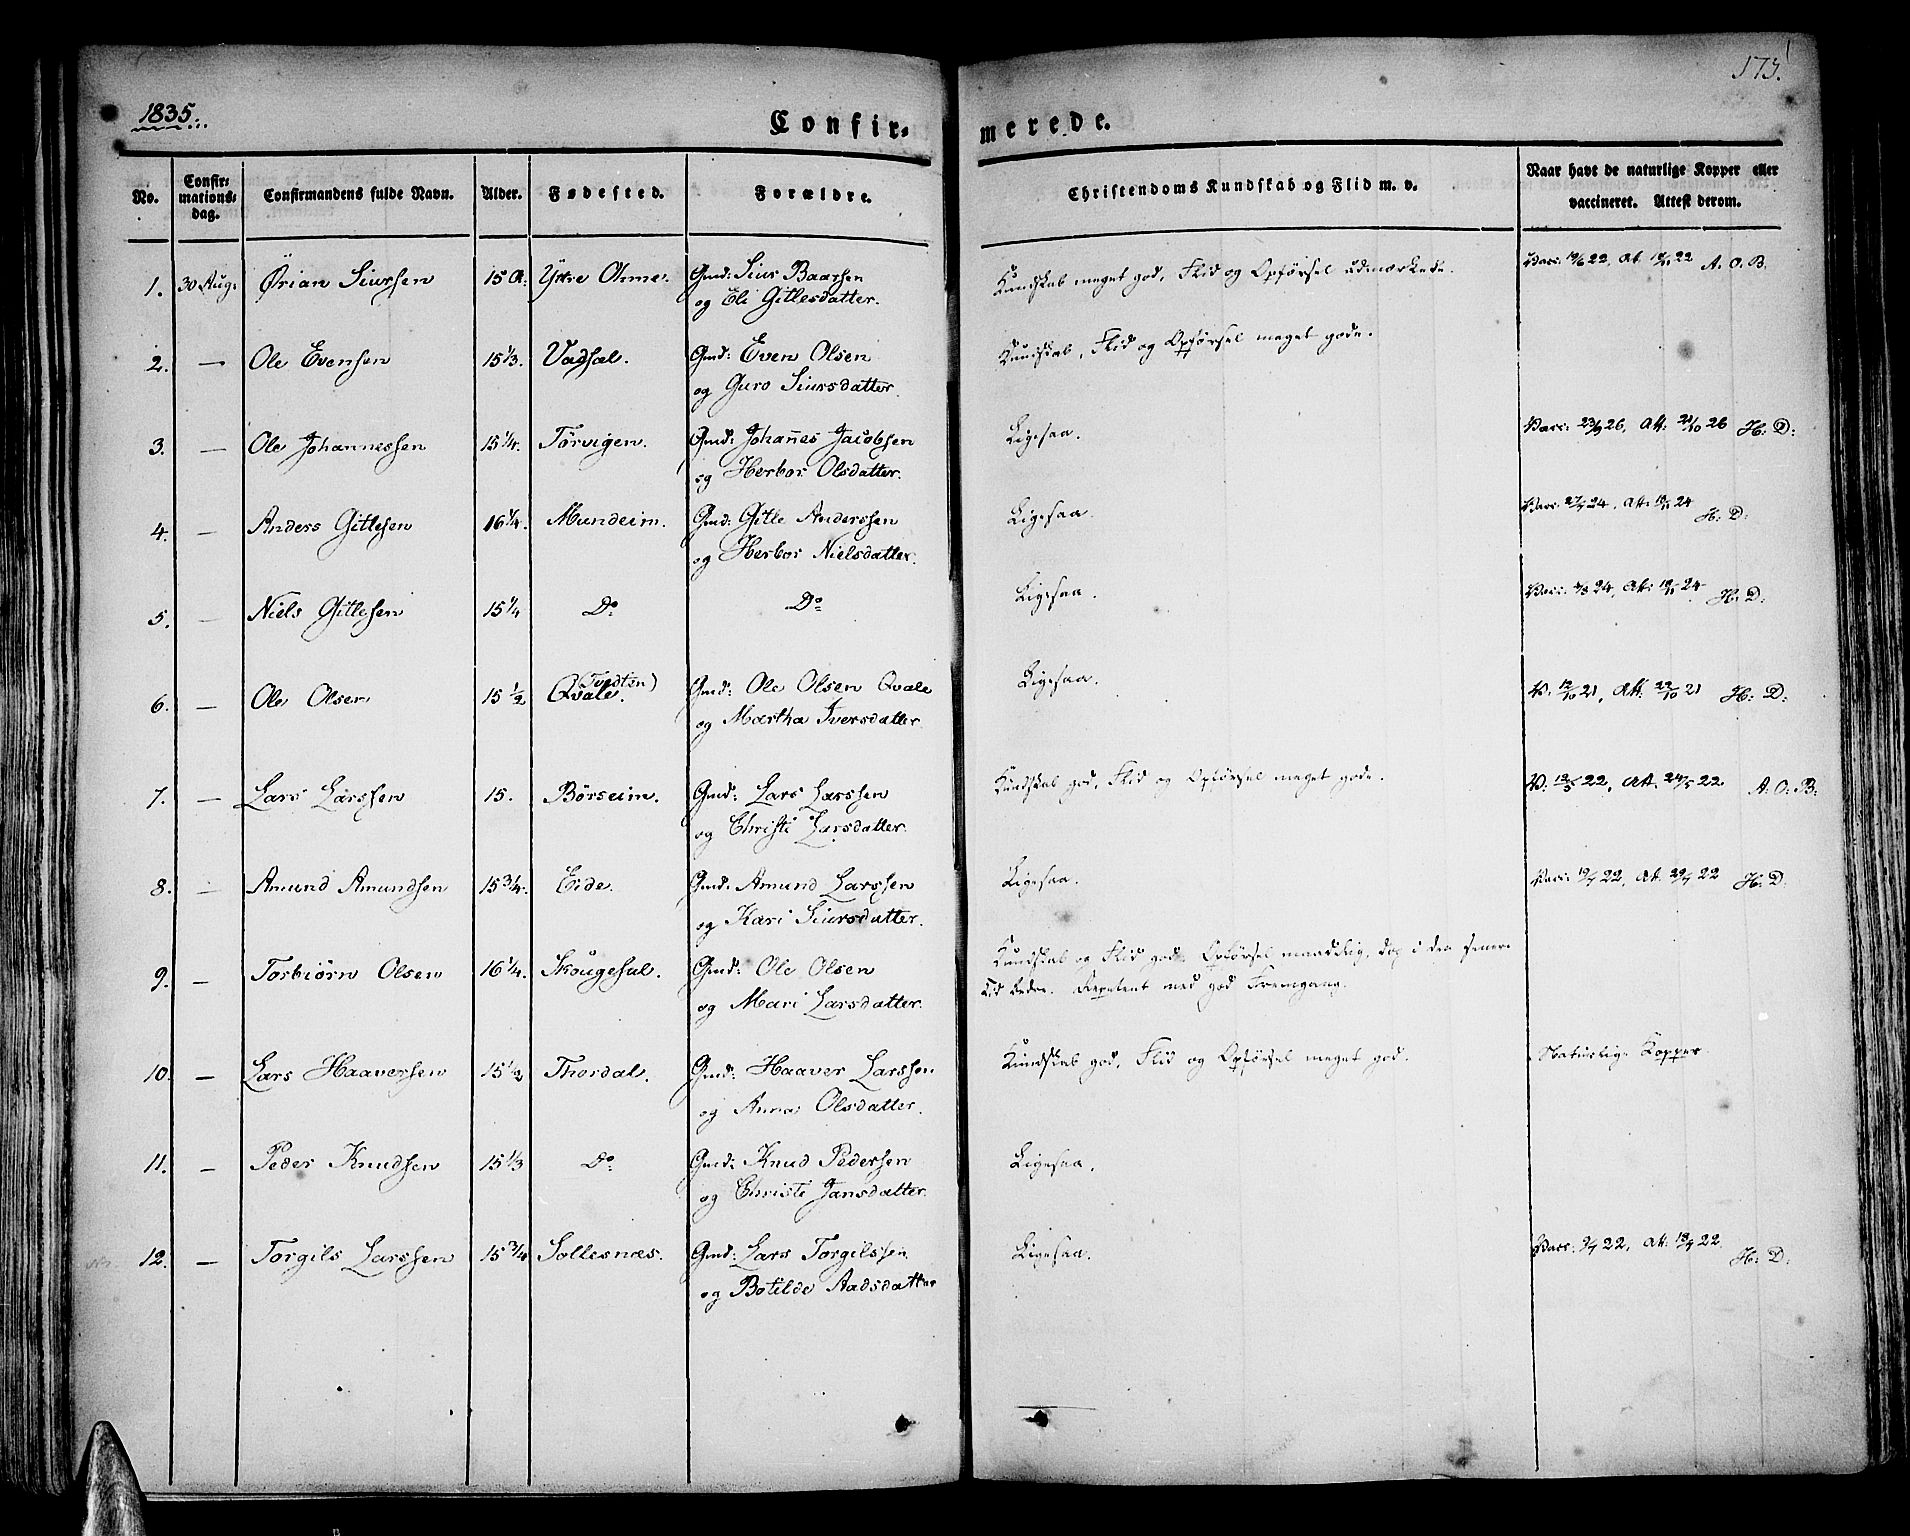 1835.
Confir-
merede.
173.
No.
Confir-
mations-
dag.
Confirmandens fulde Navn.
Alder.
Fødested.
Forældre.
Christendoms Kundskab og Flid m. v.
Naar havt de naturlige Kopper eller
vaccineret. Attest derom.
1. 30 Aug: Ørian Siursen 15 A: Ytre Ahme. Gmd: Siur Baarsen
og Eli Gitlesdatter.
Kundskab meget god, Flid og Opførsel udmærkede. A. O. B.
2. — Ole Evensen 15 1/3. Vadsel. Gmd: Even Olsen
og Guro Siursdatter.
Kundskab, Flid og Opførsel meget gode.
3. — Ole Johannessen 15 1/4. Tørvigen. Gmd: Johañes Jacobsen
og Herbor Olsdatter.
Ligesaa. Vacc: 23/9 26, At: 21/10 26 H: D:
4. — Anders Gitlesen 16 1/4. Mundeim. Gmd: Gitle Anderssen
og Herbor Nielsdatter.
Ligesaa. Vacc: 27/7 24, At: 19/11 24 H: D:
5. — Niels Gitlesen 15 1/4 Do Do
Ligesaa. 24, At: 19/11 24 H: D:
6. — Ole Olsen 15 1/2 (Tvedten)
Qvale. Gmd: Ole Olsen Qvale
og Martha Iversdatter.
Ligesaa. V. 12/10 21, At: 22/10 21 H: D:
7. — Lars Larssen 15. Børseim. Gmd: Lars Larssen
og Christi Larsdatter.
Kundskab god, Flid og Opførsel meget gode. V: 15/5 22, At: 24/5 22 A: O: B:
8. — Amund Amundsen 15 3/4. Eide. Gmd: Amund Larssen
og Kari Siursdatter.
Ligesaa. Vacc: 19/7 22, At: 29/7 22 H: D:
9. — Torbiørn Olsen 16 1/4. Skougesal. Gmd: Ole Olsen
og Mari Larsdatter.
Kundskab og Flid god. Opførsel maadelig, dog i den senere
Tid bedre. Repetent med god Fremgang.
10. — Lars Haaversen 15 1/2 Thordal. Gmd: Haaver Larssen
og Anna Olsdatter.
Kundskab god, Flid og Opførsel meget god. Naturlige Kopper
11. — Peder Knudsen 15 1/3 Do Gmd: Knud Pedersen
og Christi Jansdatter.
Ligesaa.
12. — Torgils Larssen 15 3/4 Sollesnæs. Gmd: Lars Torgilssen
og Botilde Aadsdatter
Ligesaa. Vacc: 9/7 22, At: 18/7 22 H: D: